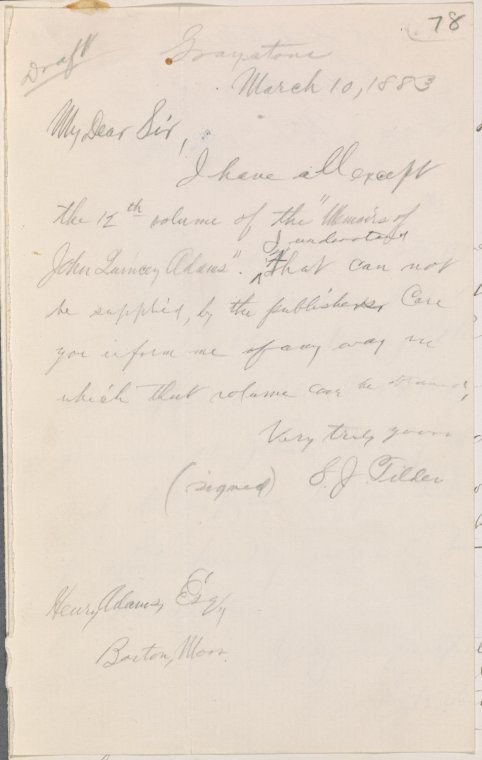 78
Draft
Graystone
March 10, 1883
My Dear Sir,
I have all except
the 12th volume of the "Memoirs of
I understand
John Quincey Adams". That can not
be supplied, by the publishers. Can
you inform me of any way in
which that volume can be
Very truly yours
(signed) S. J. Tilden
Henry Adams, Esq,
Boston, Mass.